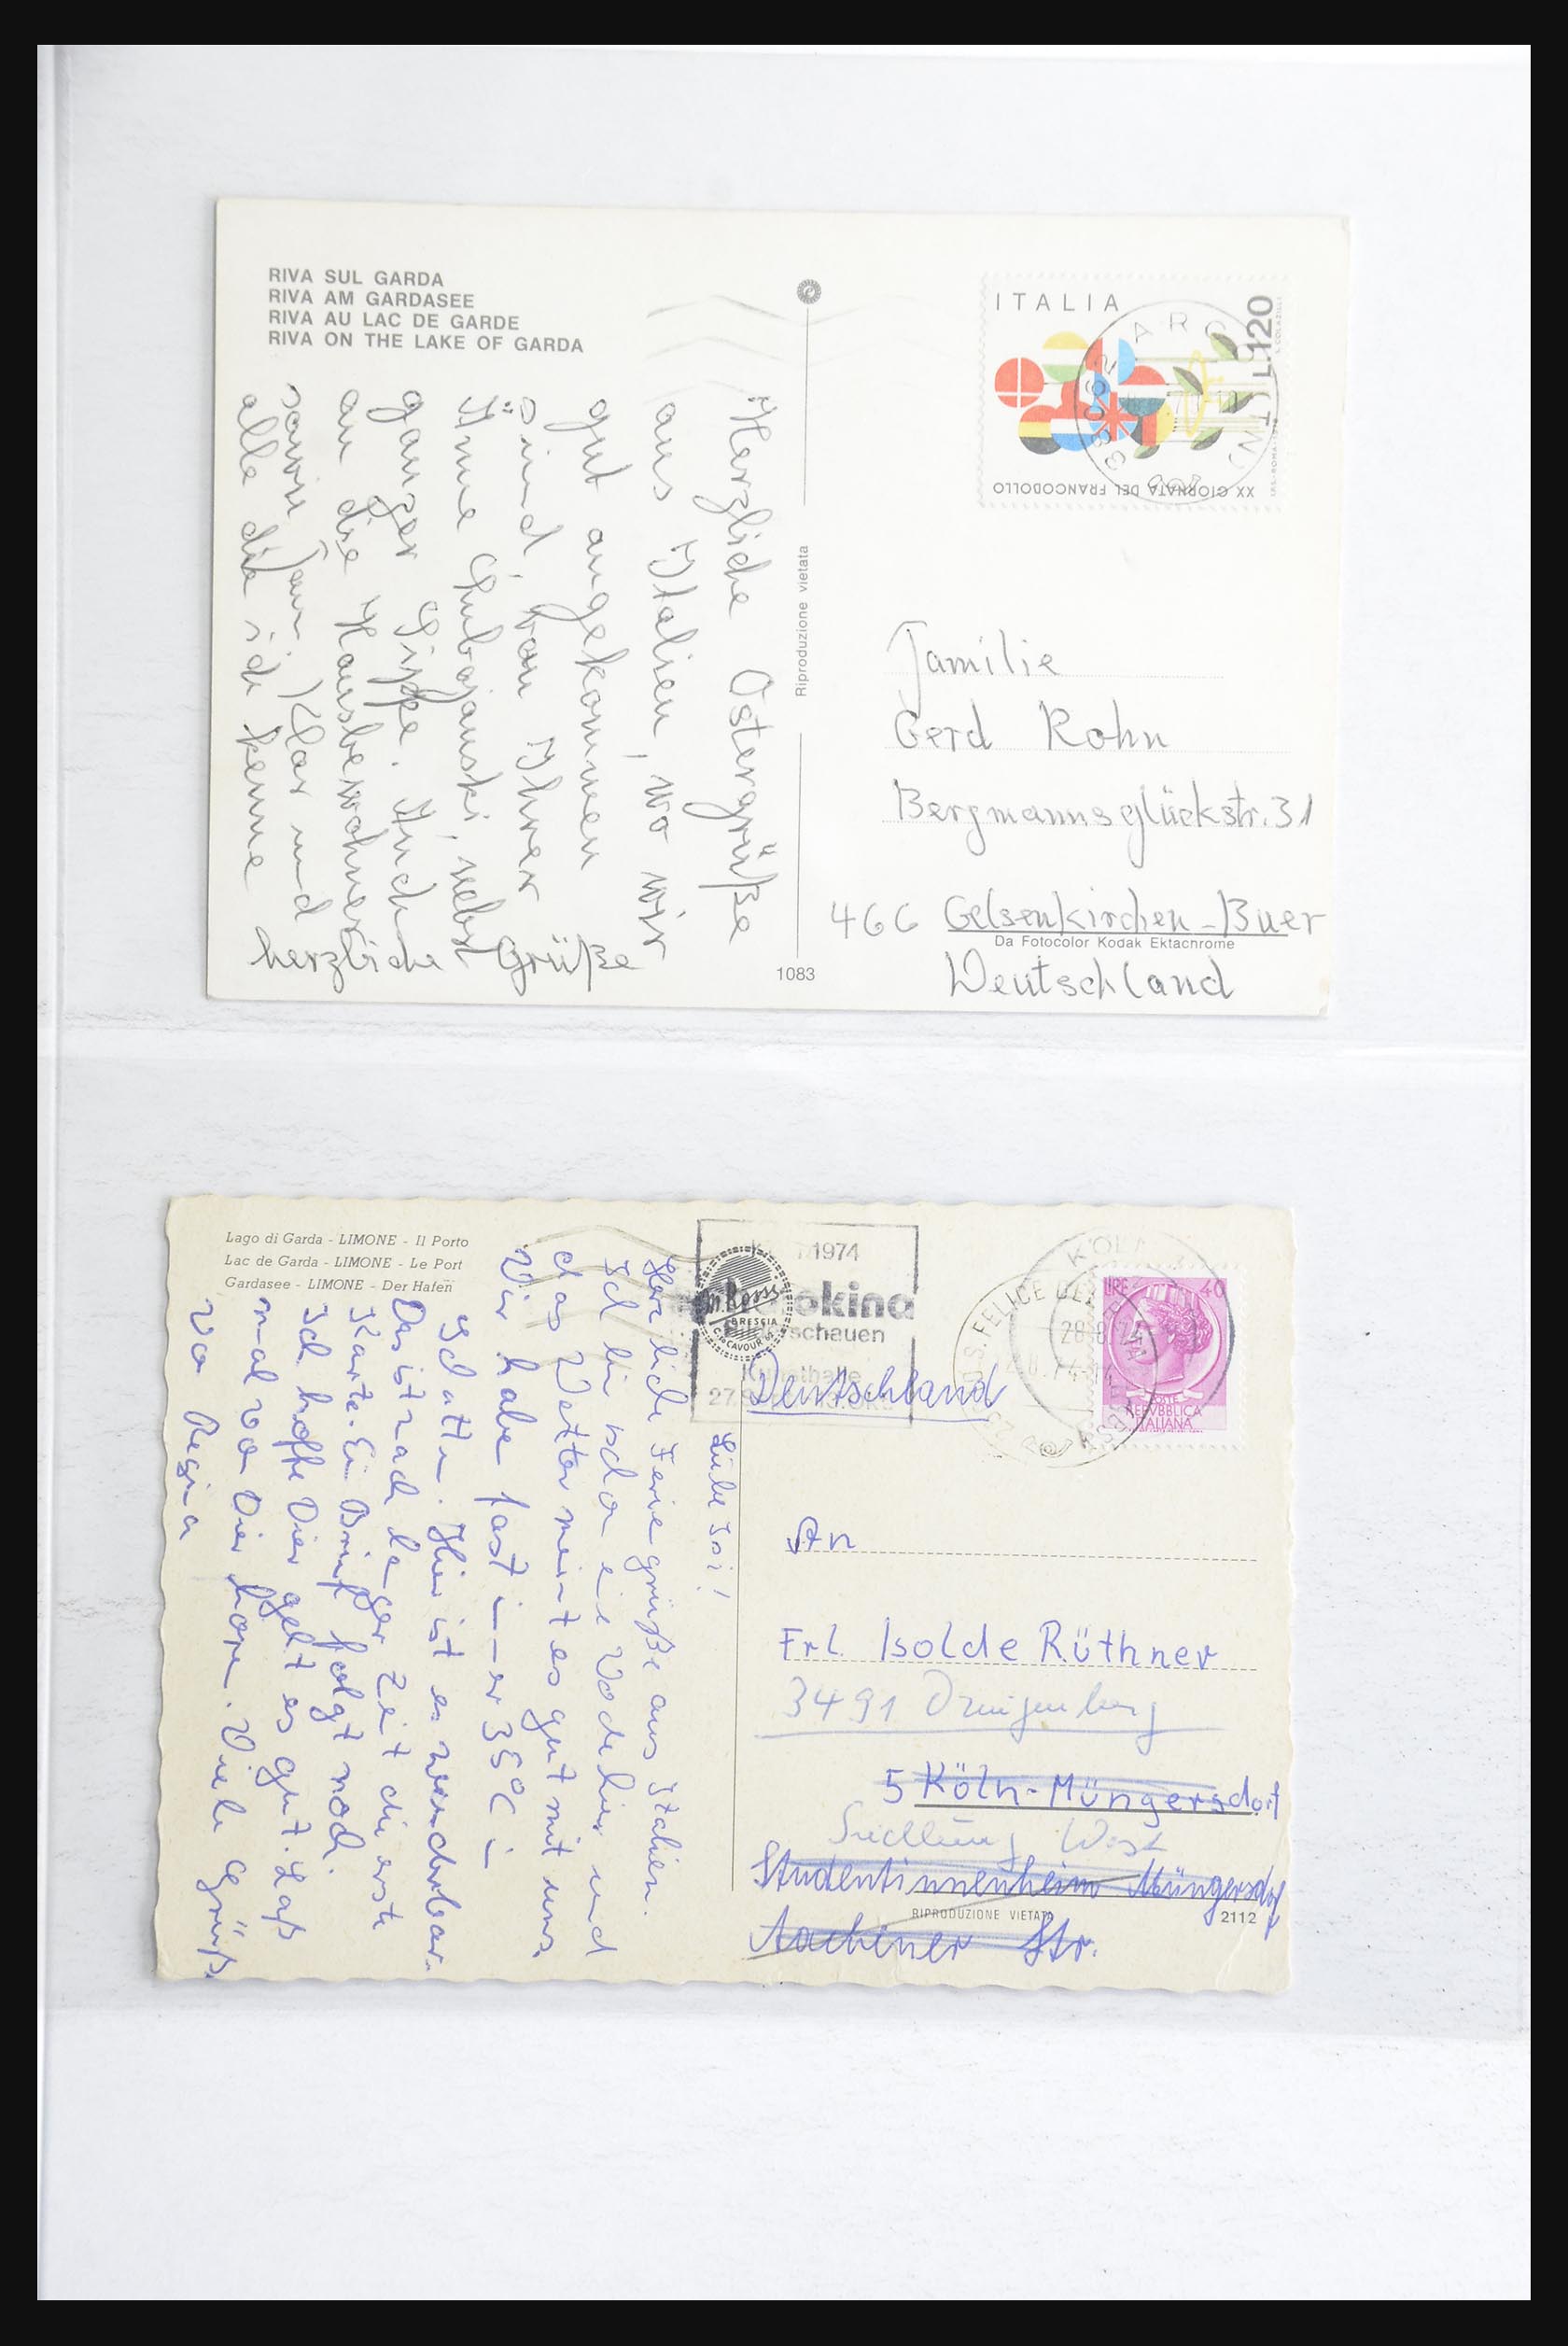 RIVA SUL GARDA
RIVA AM GARDASEE
RIVA AU LAC DE GARDE
RIVA ON THE LAKE OF GARDA
Herzliche Ostergrüße
aus Italien, wo wir
gut angekommen
sind, von Ihrer
Änne nebst
ganzer Sippe. Auch
an die Hausbewohner
sowie Klar und
alle die ich kenne
herzliche Grüße
Riproduzione vietata
1083
ITALIA
L.120
XX GIORNATA DEL FRANCOBOLLO
Familie
Gerd Rohn
Bergmannsglückstr. 31
466 Gelsenkirchen-Buer
Da Fotocolor Kodak Ektachrome
Deutschland
Lago di Garda - LIMONE - Il Porto
Lac de Garda - LIMONE - Le Port
Gardasee - LIMONE - Der Hafen
1974
okina
schauen
Kunsthalle
BRESCIA
C. CAVOUR
S. FELICE DEL
KÖLN
28.8.74
LIRE 40
POSTE
REPVBBLICA
ITALIANA
Liebe Isi!
Herzliche Feriengrüße aus Italien.
Ich bin schon eine Woche hier und
das Wetter meint es gut mit uns.
Wir haben fast immer 35°C im
Schatten. Hier ist es wunderbar.
Das ist nach langer Zeit die erste
Karte. Ein Brief folgt noch.
Ich hoffe Dier geht es gut. Laß
mal von Dier hören. Viele Grüße
von Regina
Deutschland
An
Frl. Isolde Rüthner
3491 Dringenberg
5 Köln-Müngersdorf
Siedlung West
Studentinnenheim Müngersdorf
RIPRODUZIONE VIETATA
2112
Aachener Str.